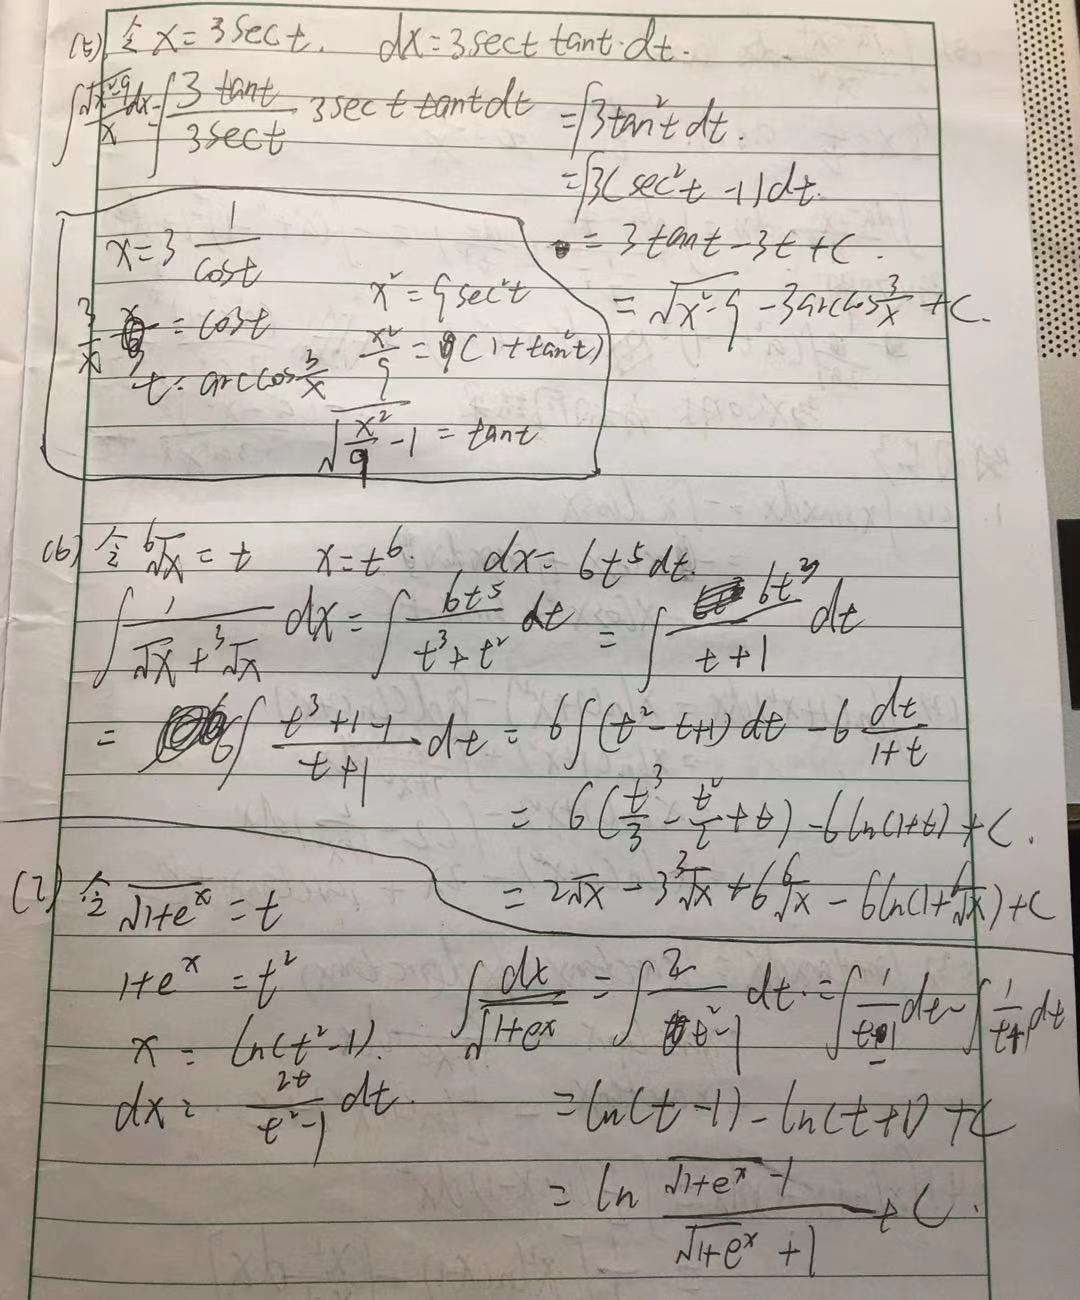 (5) 令 x = 3sect. dx = 3sect tant·dt.
∫ √(x²-9)/x dx = ∫ (3tant)/(3sect) 3sect tant dt = ∫3tan²t dt.
= ∫3(sec²t - 1)dt.
= 3tant - 3t + C.
= √(x²-9) - 3arccos 3/x + C.
x = 3 1/cost
3/x = cost
t = arccos 3/x
x² = 9sec²t
x²/9 = (1+tan²t)
√(x²/9 - 1) = tant
(6) 令 ⁶√x = t x = t⁶. dx = 6t⁵dt.
∫ 1/(√x + ³√x) dx = ∫ 6t⁵/(t³+t²) dt = ∫ 6t³/(t+1) dt
= 6∫ (t³+1-1)/(t+1) dt = 6∫(t²-t+1)dt - 6 dt/(1+t)
= 6(t³/3 - t²/2 + t) - 6ln(1+t) + C.
= 2√x - 3³√x + 6⁶√x - 6ln(1+⁶√x) + C
(7) 令 √(1+eˣ) = t
1+eˣ = t²
x = ln(t²-1).
dx = 2t/(t²-1) dt.
∫ dx/√(1+eˣ) = ∫ 2/(t²-1) dt. = ∫ 1/(t-1) dt - ∫ 1/(t+1) dt
= ln(t-1) - ln(t+1) + C
= ln (√(1+eˣ) - 1)/(√(1+eˣ) + 1) + C.